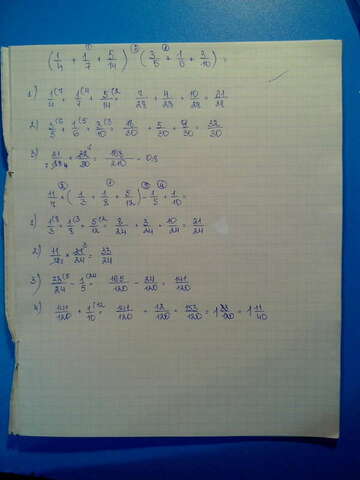 (1/4 + 1/7 + 5/14) (3/5 + 1/6 + 3/10) =
1) 1/4 + 1/7 + 5/14 = 7/28 + 4/28 + 10/28 = 21/28
2) 3/5 + 1/6 + 3/10 = 18/30 + 5/30 + 9/30 = 32/30
3) 21/28 × 32/30 = = 0,8
11/7 × (1/3 + 1/8 + 5/12) - 1/5 + 1/10 =
1) 1/3 + 1/8 + 5/12 = 8/24 + 3/24 + 10/24 = 21/24
2) 11/7 × 21/24 = 33/24
3) 33/24 - 1/5 = 165/120 - 24/120 = 141/120
4) 141/120 + 1/10 = 141/120 + 12/120 = 153/120 = 1 33/120 = 1 11/40